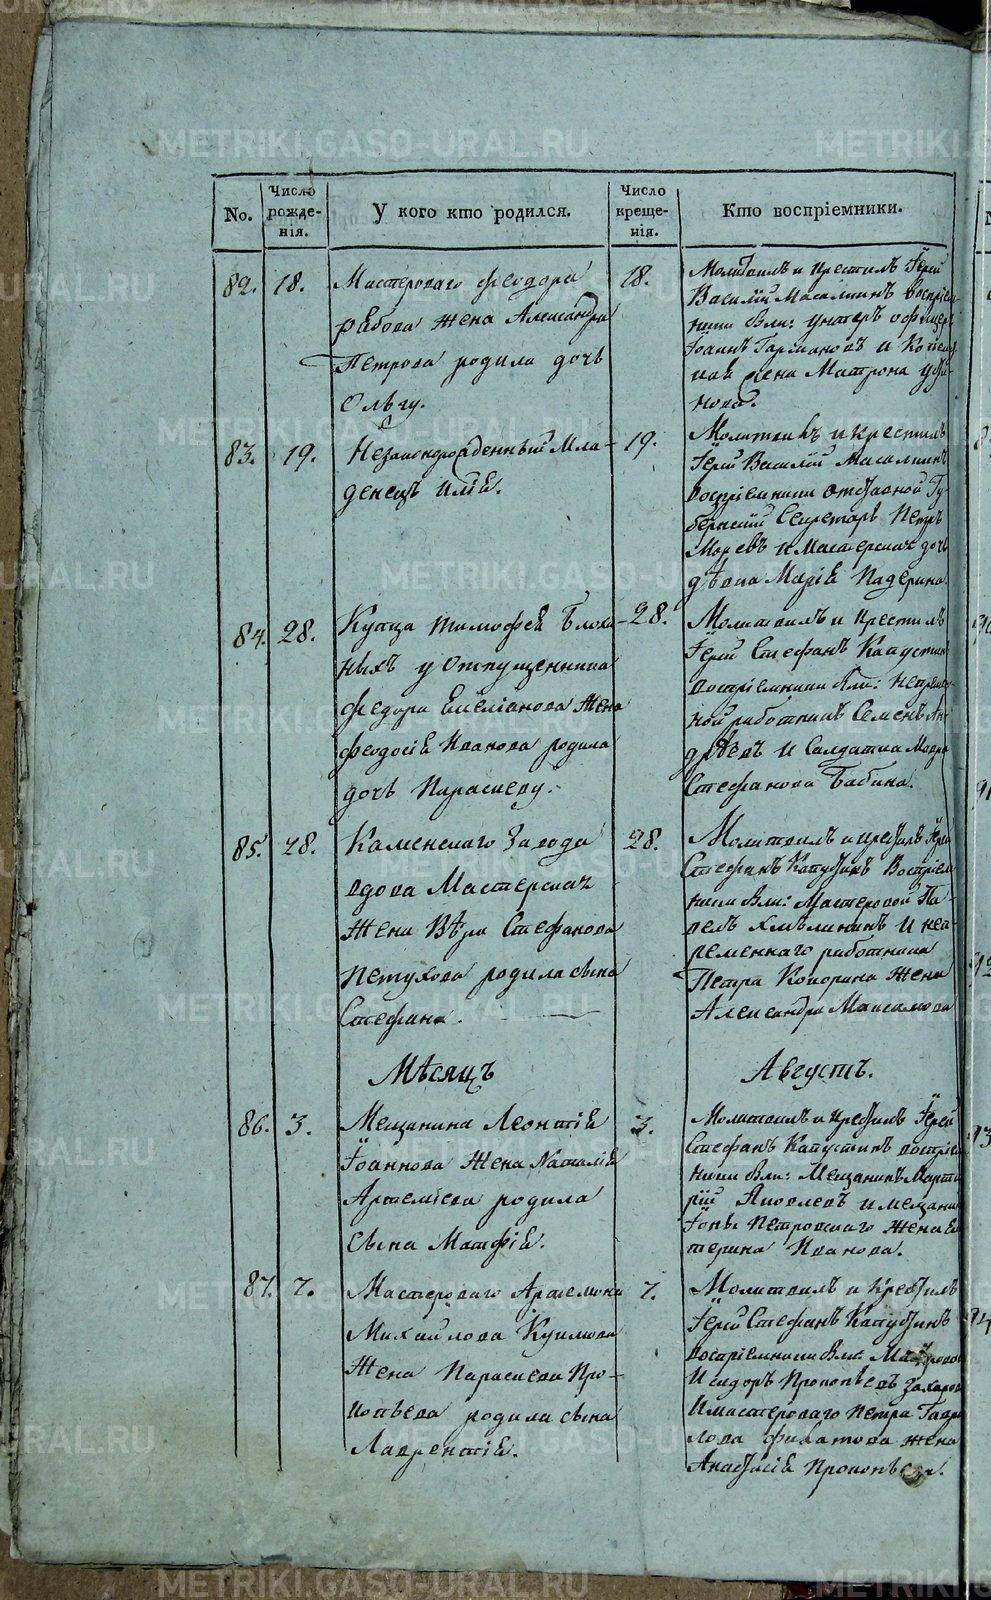 No.
Число рожде-нія.
У кого кто родился.
Число креще-нія.
Кто воспріемники.
82. 18.
Мастероваго Феодора
Рябова жена Александра
Петрова родила дочь
Ольгу.
18.
Молитвилъ и крестилъ Іерей
Василій
воспріем
ники были: унтеръ офицеръ
Іоаннъ и
жена Матрона
нова.
83. 19.
Незаконорожденный мла-
денецъ Илія.
19.
Молитвилъ и крестилъ
Іерей Василій
воспріемники отставной Гу-
бернскій Секретарь Петръ
и Мастерская дочь
дѣвка Марія Падерина
84. 28.
Купца Тимофея Блохи-
ныхъ у отпущенника
Федора Емеліанова жена
Феодосія Иванова родила
дочь Параскеву.
28.
Молитвилъ и крестилъ
Іерей Стефанъ Капустин
воспріемники были: непремѣн-
ной работникъ Семенъ Ан-
дрѣевъ и Солдатка Мавра
Стефанова Бабина.
85. 28.
Каменскаго завода
вдова Мастерская
жена Вѣра Стефанова
Петухова родила сына
Стефана.
28.
Молитвилъ и крестилъ Іерей
Стефанъ Капустинъ Воспріем
ники были: Мастеровой Па-
велъ Хмѣлининъ и неп-
ременнаго работника
Петра Кокорина жена
Александра Максимова
Мѣсяцъ Августъ.
86. 3.
Мещанина Леонтія
Іоаннова жена Наталія
Артеміева родила
сына Матфія.
3.
Молитвилъ и крестилъ Іерей
Стефанъ Капустинъ воспріем
ники были: Мещанинъ Марти-
рій Яковлевъ и мещанин
Іоны Петровскаго жена Ека
терина Иванова.
87. 7.
Мастероваго Артемона
Михайлова Куклина
жена Параскева Про-
копьева родила сына
Лаврентія.
7.
Молитвилъ и крестилъ
Іерей Стефанъ Капустинъ
воспріемники были: Мастеровой
Исидоръ Прокопьевъ Захаров
и мастероваго Петра Гаври
лова Филатова жена
Анастасія Прокопьева.
METRIKI.GASO-URAL.RU